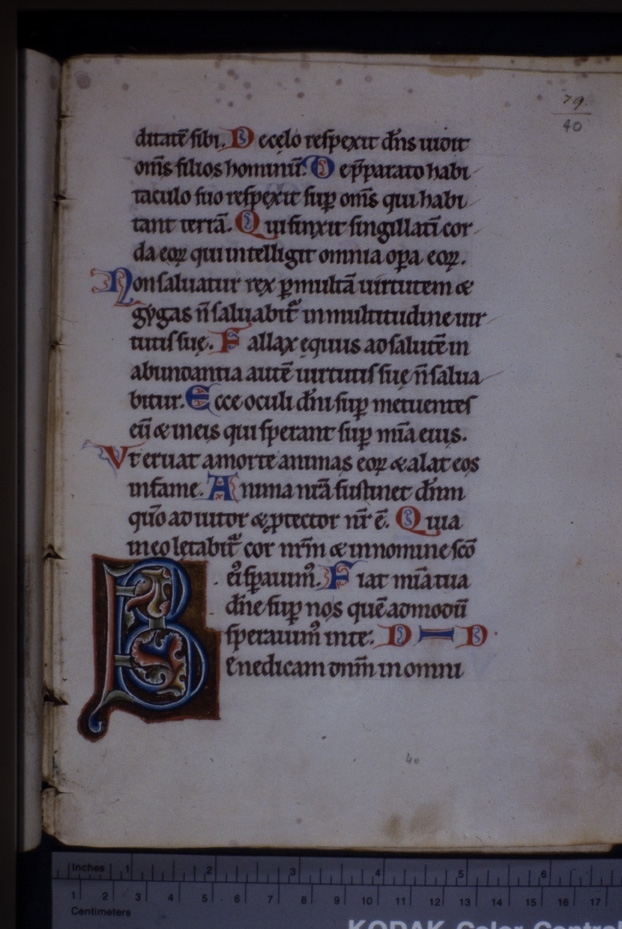 79
40
ditatē sibi. De cęlo respexit dn̄s uidit
om̄s filios hominū. De p̄parato habi
taculo suo respexit suꝑ om̄s qui habi
tant terrā. Qui finxit singillatī cor
da eoꝝ qui intelligit omnia oꝑa eoꝝ.
Non saluatur rex ꝑ multā uirtutem &
gẏgas n̄ saluabit᷑ in multitudine uir
tutis suę. Fallax equus ad salutē in
abundantia autē uirtutis suę n̄ salua
bitur. Ecce oculi dn̄i suꝑ metuentes
eū & in eis qui sperant suꝑ mīa eius.
Vt eruat a morte animas eoꝝ & alat eos
in fame. Anima nr̄a sustinet dn̄m
qm̄o adiutor & ꝓtector nr̄ ē. Quia
in eo lętabit᷑ cor nr̄m & in nomine sc̄o
ei᷒ sꝑauim᷒. Fiat mīa tua
dn̄e suꝑ nos quēadmodū
sperauim᷒ in te. D D
Benedicam dn̄m in omni
40
Inches 1 2 3 4 5 6
1 2 3 4 5 6 7 8 9 10 11 12 13 14 15 16 17
Centimeters
KODAK Color Control